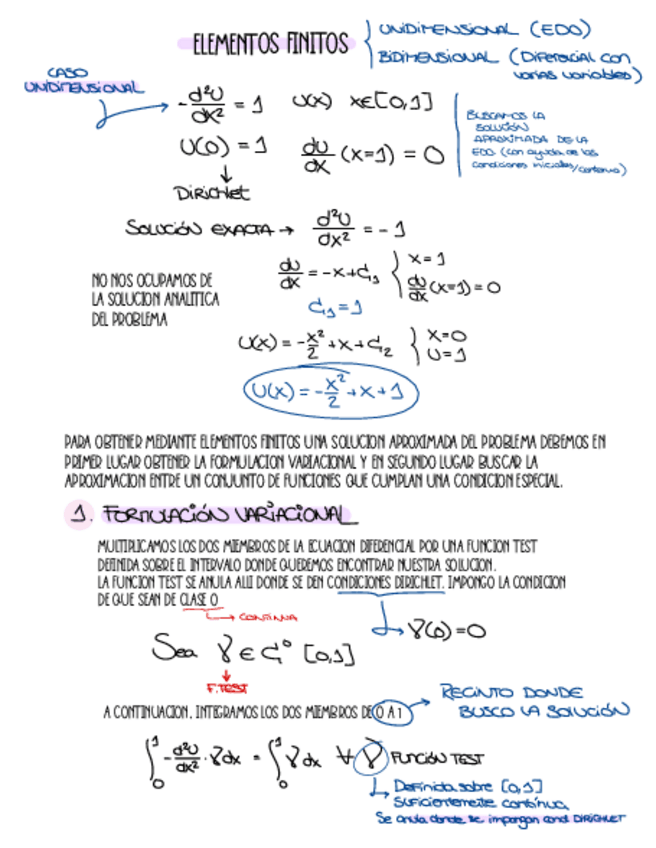 ELEMENTOS FINITOS
UNIDIMENSIONAL (EDO)
BIDIMENSIONAL (Diferencial con
varias variables)
CASO
UNIDIMENSIONAL
-d²U/dx² = 1 U(x) x∈[0,1]
U(0) = 1 dU/dx (x=1) = 0
↓
Dirichlet
BUSCAMOS LA
SOLUCIÓN
APROXIMADA DE LA
EDO (con ayuda de las
condiciones iniciales/contorno)
SOLUCIÓN EXACTA → d²U/dx² = -1
NO NOS OCUPAMOS DE
LA SOLUCION ANALITICA
DEL PROBLEMA
dU/dx = -x+C₁ { x=1
dU/dx (x=1) = 0
C₁=1
U(x) = -x²/2 + x + C₂ } x=0
U=1
U(x) = -x²/2 + x + 1
PARA OBTENER MEDIANTE ELEMENTOS FINITOS UNA SOLUCION APROXIMADA DEL PROBLEMA DEBEMOS EN
PRIMER LUGAR OBTENER LA FORMULACION VARIACIONAL Y EN SEGUNDO LUGAR BUSCAR LA
APROXIMACION ENTRE UN CONJUNTO DE FUNCIONES QUE CUMPLAN UNA CONDICION ESPECIAL.
1. FORMULACIÓN VARIACIONAL
MULTIPLICAMOS LOS DOS MIEMBROS DE LA ECUACION DIFERENCIAL POR UNA FUNCION TEST
DEFINIDA SOBRE EL INTERVALO DONDE QUEREMOS ENCONTRAR NUESTRA SOLUCION.
LA FUNCION TEST SE ANULA ALLI DONDE SE DEN CONDICIONES DIRICHLET. IMPONGO LA CONDICION
DE QUE SEAN DE CLASE 0
→ CONTINUA
γ(0)=0
Sea γ ∈ C⁰ [0,1]
↓
F.TEST
A CONTINUACION, INTEGRAMOS LOS DOS MIEMBROS DE 0 A 1
→ RECINTO DONDE
BUSCO LA SOLUCIÓN
∫₀¹ -d²U/dx² · γdx = ∫₀¹ γdx ∀ γ FUNCIÓN TEST
Definida sobre [0,1]
Suficientemente continua
Se anula donde se impongan cond DIRICHLET